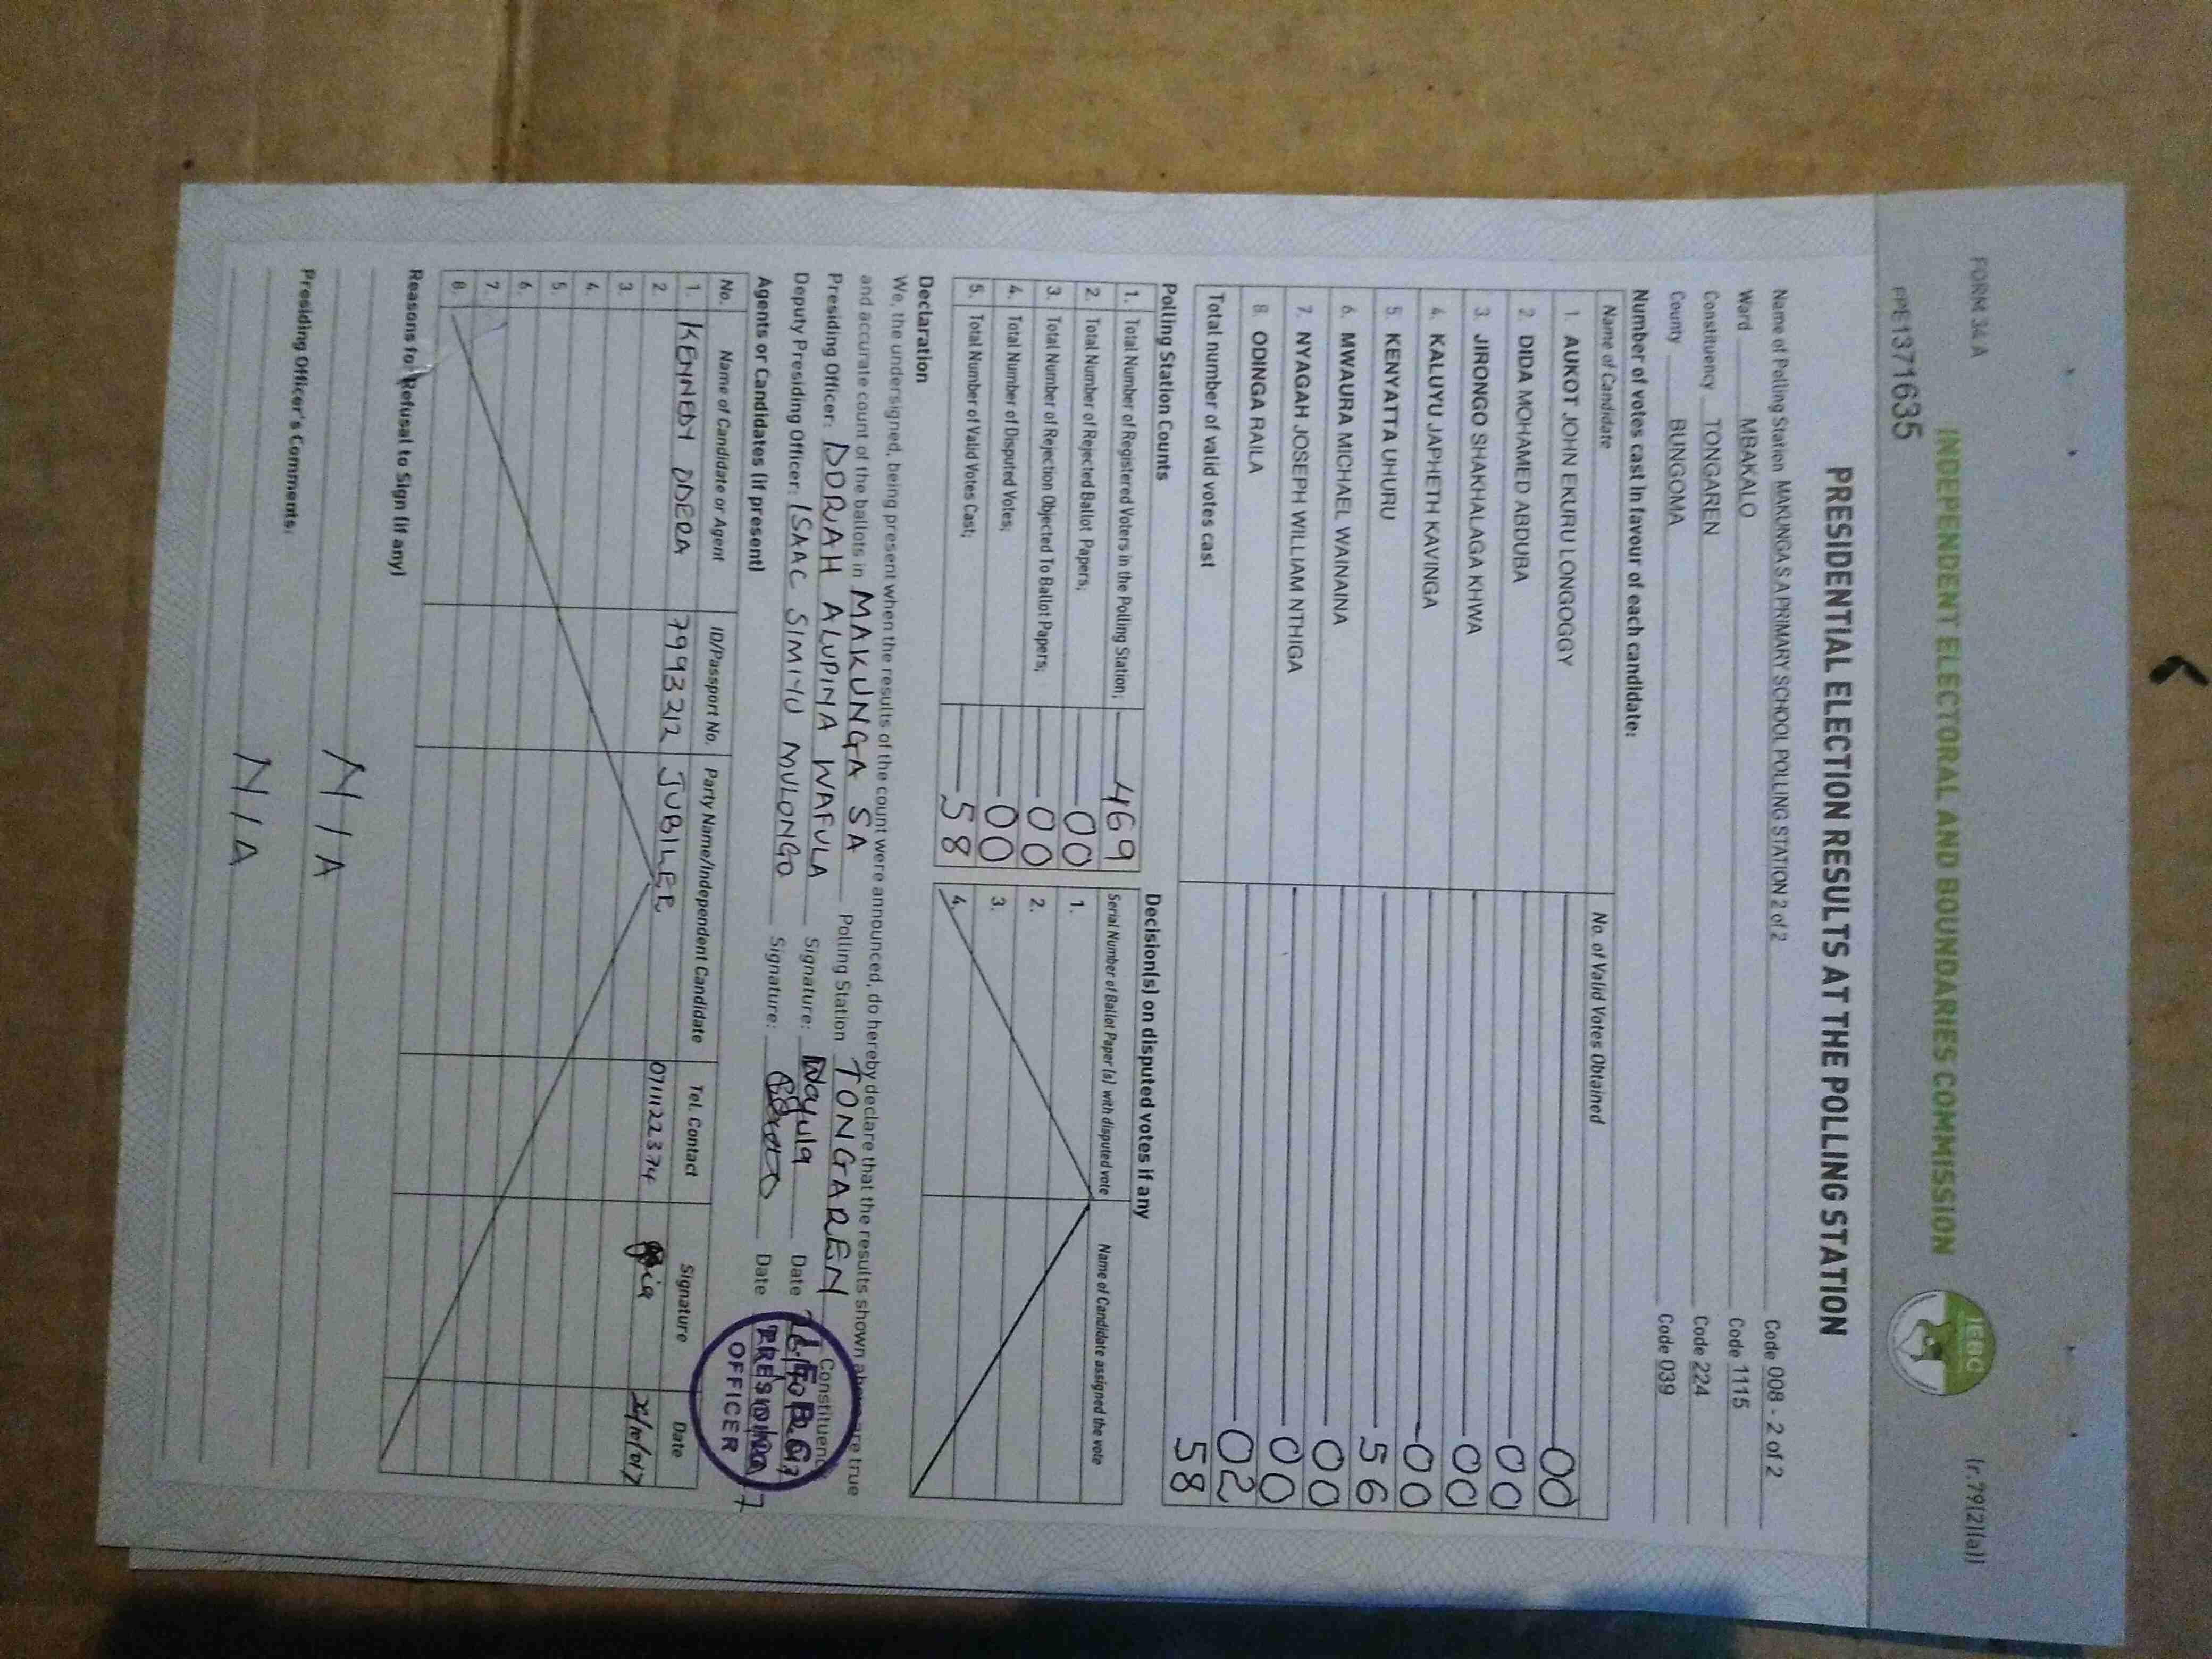 FORM 34A (r.79(2)(a))
INDEPENDENT ELECTORAL AND BOUNDARIES COMMISSION
IEBC
PPE1371635
PRESIDENTIAL ELECTION RESULTS AT THE POLLING STATION
Name of Polling Station MAKUNGA S A PRIMARY SCHOOL POLLING STATION 2 of 2 Code 008 - 2 of 2
Ward MBAKALO Code 1115
Constituency TONGAREN Code 224
County BUNGOMA Code 039
Number of votes cast in favour of each candidate:
Name of Candidate No. of Valid Votes Obtained
1. AUKOT JOHN EKURU LONGOGGY 00
2. DIDA MOHAMED ABDUBA 00
3. JIRONGO SHAKHALAGA KHWA 00
4. KALUYU JAPHETH KAVINGA 00
5. KENYATTA UHURU 56
6. MWAURA MICHAEL WAINAINA 00
7. NYAGAH JOSEPH WILLIAM NTHIGA 00
8. ODINGA RAILA 02
Total number of valid votes cast 58
Polling Station Counts
1. Total Number of Registered Voters in the Polling Station; 469
2. Total Number of Rejected Ballot Papers; 00
3. Total Number of Rejection Objected To Ballot Papers; 00
4. Total Number of Disputed Votes; 00
5. Total Number of Valid Votes Cast; 58
Decision(s) on disputed votes if any
Serial Number of Ballot Paper (s) with disputed vote Name of Candidate assigned the vote
1.
2.
3.
4.
Declaration
We, the undersigned, being present when the results of the count were announced, do hereby declare that the results shown above are true
and accurate count of the ballots in MAKUNGA SA Polling Station TONGAREN Constituency
Presiding Officer: DDRAH ALUPINA WAFULA Signature: Wafula Date
Deputy Presiding Officer: ISAAC SIMIYU MULONGO Signature: Date
IEBC
PRESIDING
OFFICER
Agents or Candidates (if present)
No. Name of Candidate or Agent ID/Passport No. Party Name/Independent Candidate Tel. Contact Signature Date
1. KENNEDY ODERA 7993212 JUBILEE 0711122374
2.
3.
4.
5.
6.
7.
8.
Reasons for Refusal to Sign (if any)
N/A
Presiding Officer's Comments:
N/A